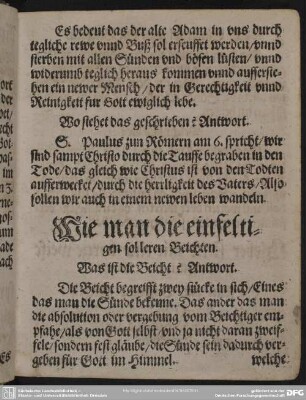 Es bedeut das der alte Adam in vns durch
tegliche rewe vnnd Buß sol erseuffet werden / vnnd
sterben mit allen Sünden vnd bösen lüsten / vnnd
widerumb teglich heraus kommen vnnd aufferste-
hen ein newer Mensch / der in Gerechtigkeit vnnd
Reinigkeit für Gott ewiglich lebe.
Wo stehet das geschrieben? Antwort.
S. Paulus zun Römern am 6. spricht / wir
sind sampt Christo durch die Tauffe begraben in den
Tode / das gleich wie Christus ist von den Todten
aufferwecket / durch die herrligkeit des Vaters / Also
sollen wir auch in einem newen leben wandeln.
Wie man die einfelti-
gen sol leren Beichten.
Was ist die Beicht? Antwort.
Die Beicht begreifft zwey stücke in sich / Eines
das man die Sünde bekenne. Das ander das man
die absolution oder vergebung vom Beichtiger em-
pfahe / als von Gott selbst / vnd ja nicht daran zweif-
fele / sondern fest gläube / die Sünde sein dadurch ver-
geben für Gott im Himmel.
welche